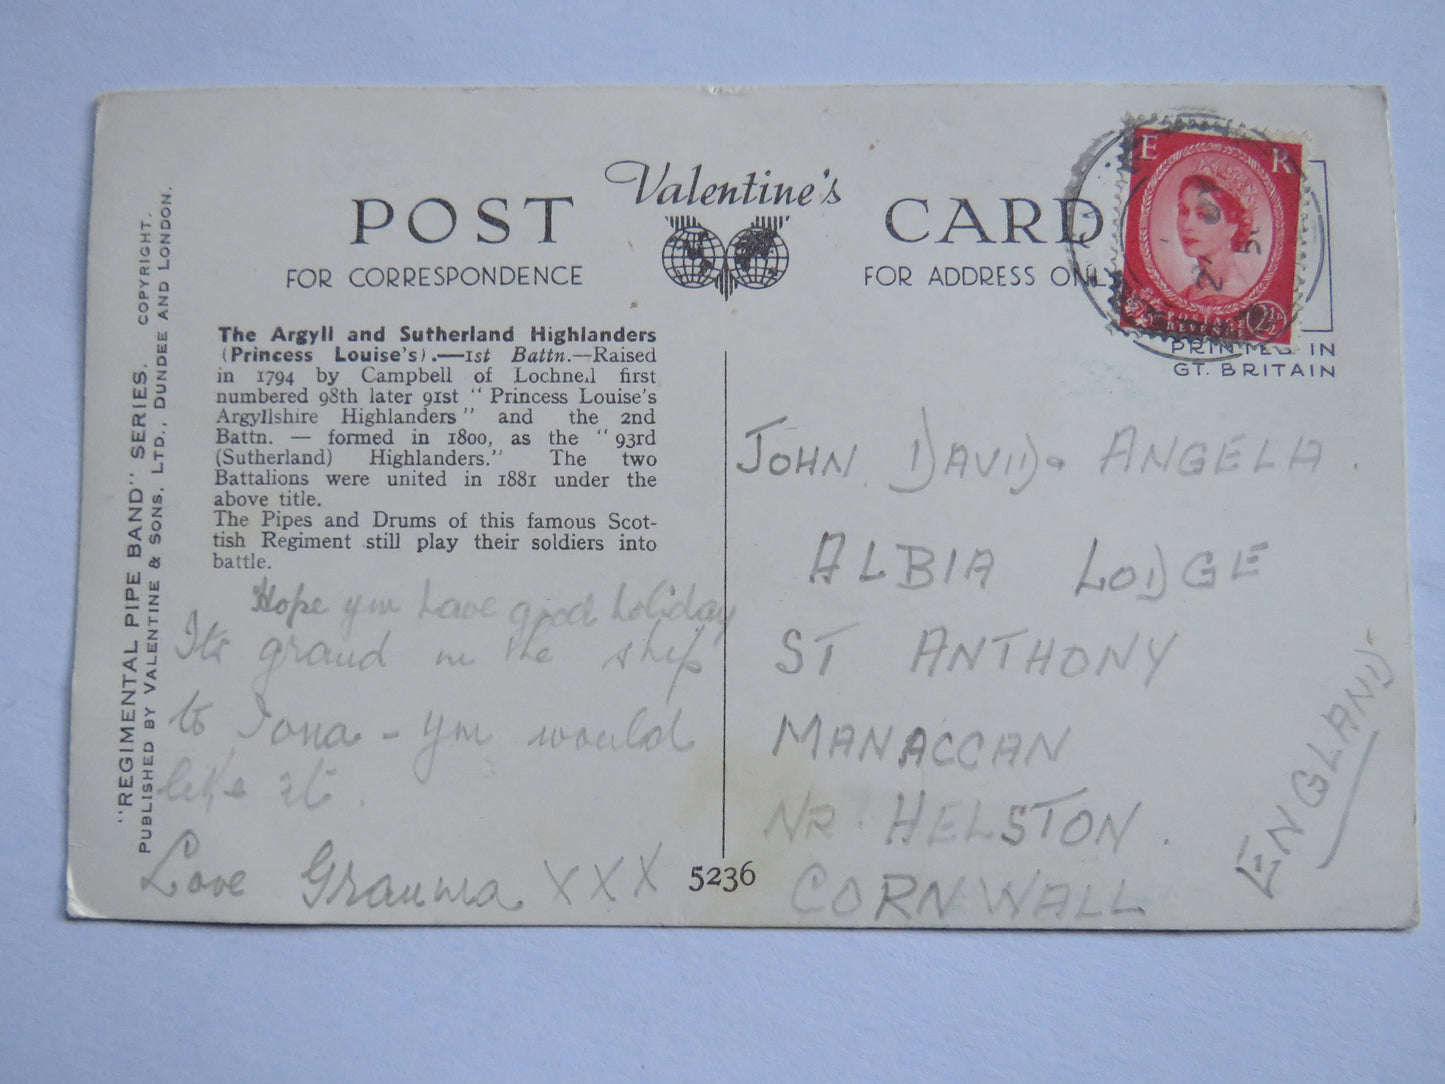 Valentine's
POST CARD
FOR CORRESPONDENCE
FOR ADDRESS ONLY
E R
POSTAGE
REVENUE
2½D
PRINTED IN
GT. BRITAIN
"REGIMENTAL PIPE BAND" SERIES. COPYRIGHT.
PUBLISHED BY VALENTINE & SONS, LTD., DUNDEE AND LONDON.
The Argyll and Sutherland Highlanders
(Princess Louise's).—1st Battn.—Raised
in 1794 by Campbell of Lochnell first
numbered 98th later 91st "Princess Louise's
Argyllshire Highlanders" and the 2nd
Battn. — formed in 1800, as the "93rd
(Sutherland) Highlanders." The two
Battalions were united in 1881 under the
above title.
The Pipes and Drums of this famous Scot-
tish Regiment still play their soldiers into
battle.
Hope you have good holiday
Its grand in the ship
to Iona - you would
like it.
Love Grauma XXX
5236
JOHN. DAVID & ANGELA.
ALBIA LODGE
ST ANTHONY
MANACCAN
NR. HELSTON.
CORNWALL
ENGLAND